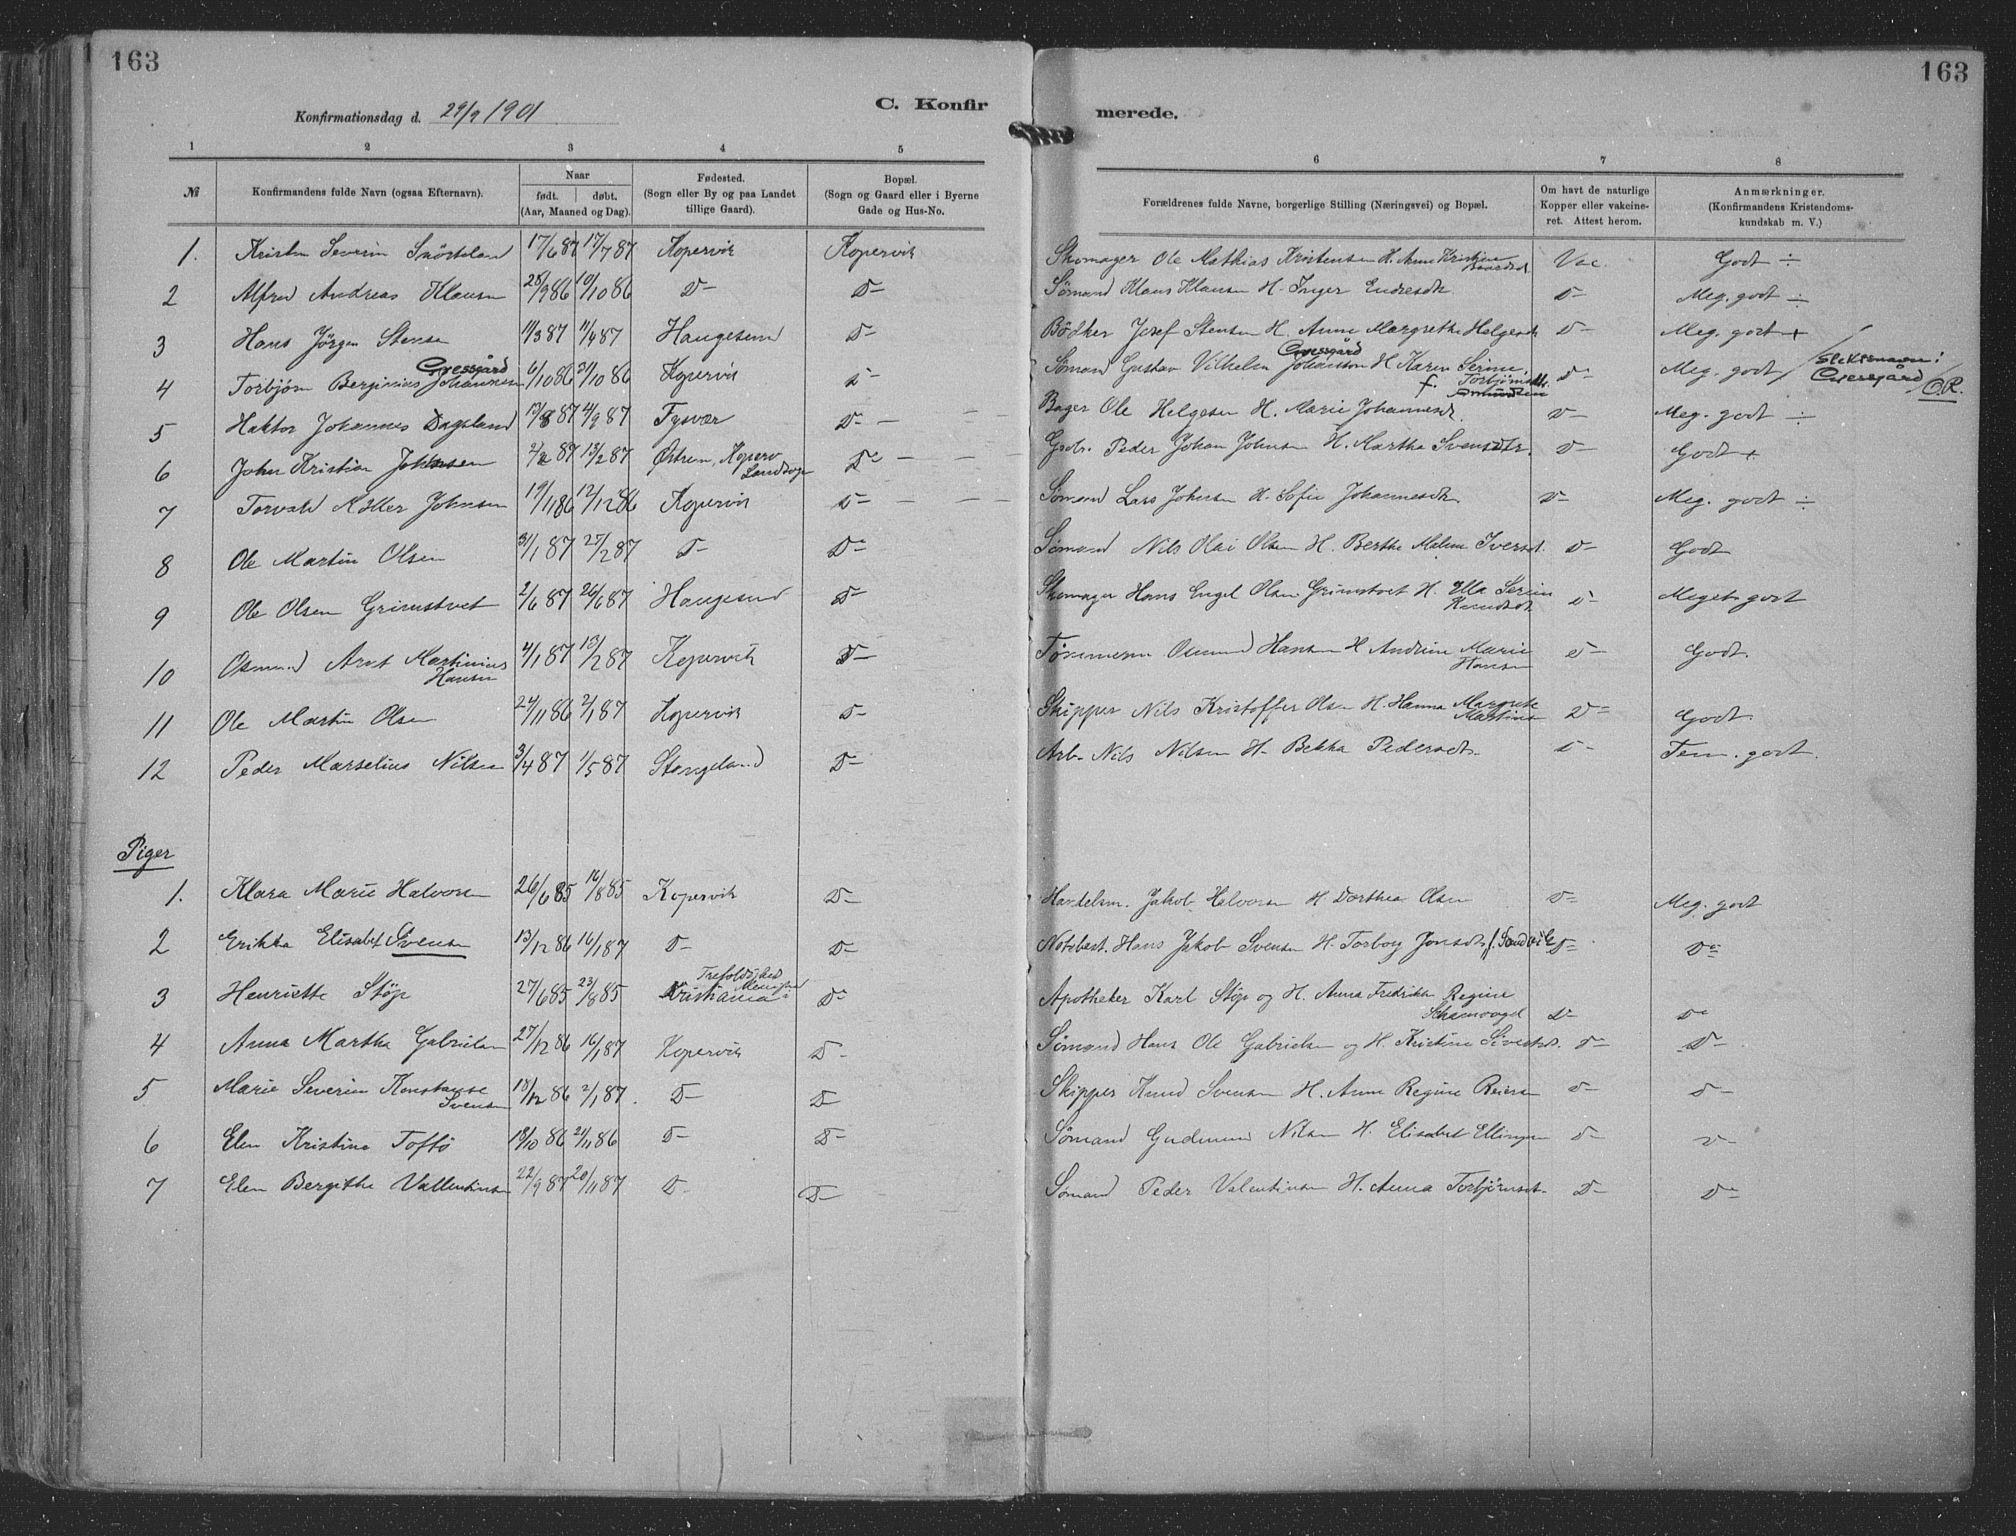 163
163
Konfirmationsdag d. 29/9 1901
C. Konfirmerede.
1 2 3 4 5 6 7 8
№
Konfirmandens fulde Navn (ogsaa Efternavn).
Naar
født. døbt.
(Aar, Maaned og Dag).
Fødested.
(Sogn eller By og paa Landet
tillige Gaard).
Bopæl.
(Sogn og Gaard eller i Byerne
Gade og Hus-No.
Forældrenes fulde Navne, borgerlige Stilling (Næringsvei) og Bopæl.
Om havt de naturlige
Kopper eller vakcine-
ret. Attest herom.
Anmærkninger.
(Konfirmandens Kristendoms-
kundskab m. V.)
1. Severin 17/6 87 17/7 87 Kopervik Kopervik Skomager Ole Mathias Kristensen H. Anne Kristine Vac. Godt ÷
2 Alfred Andreas Klausen 28/9 86 10/10 86 D- D- Sømand Klaus Klausen H. Inger Endresdtr D- Meg. godt ÷
3 Hans Jørgen Stensen 11/3 87 11/4 87 Haugesund D- Bødker Josef Stensen H. Anne Margrethe Helgesdtr D- Meg. godt +
4 Torbjørn Berginius Johannesen Gressgård 6/10 86 31/10 86 Kopervik D- Sømand Gustav Vilhelm Johanson Gressgård H. Karen Serine Torbjørnsdtr. f. Amundsen D- Meg. godt / Slektsnavn: Gressgård / O.R.
5 Haktor Johannes Dagsland 4/9 87 Tysvær D- Bager Ole Helgesen H. Marie Johannesdt. D- Meg. godt ÷
6 John Kristian Johnsen 2/2 87 13/2 87 Østrem, Koperv Landsogn D- Gbr. Peder Johan Johnsen H. Martha Svensdtr. D- Godt +
7 Torvald Adler Johnsen 19/11 86 12/12 86 Kopervik D- Sømand Lars Johnsen H. Sofie Johannesdtr D- Meg. godt ÷
8 Ole Martin Olsen 31/1 87 27/2 87 D- D- Sømand Nils Olai Olsen H. Berthe Malene Iversdt. D- Godt
9 Ole Olsen Grimstvet 2/6 87 26/6 87 Haugesund D- Skomager Hans Engel Olsen Grimstvet H. Ella Serine Knudsdt. D- Meget godt
10 Osmund Arnt Martinius Hansen 4/1 87 13/2 87 Kopervik D- Tømmerm Osmund Hansen H Andrine Marie Hansen D- Godt.
11 Ole Martin Olsen 24/11 86 2/1 87 Kopervik D- Skipper Nils Kristoffer Olsen H. Hanna Margrete Martinsen D- Godt.
12 Peder Marselius Nilsen 3/4 87 1/5 87 Stangeland D- Arb. Nils Nilsen H. Bekka Pedersdt. D- Tem. godt.
Piger
1. Klara Marie Halvorsen 26/6 85 16/8 85 Kopervik D- Handelsm. Jakob Halvorsen H Dorthea Olsen D- Meg. godt
2 Erikka Elisabet Svensen 13/12 86 16/1 87 D- D- Hans Jakob Svensen H. Torborg Jonsdt. f. D- D-
3 Henriette Støp 27/6 85 23/8 85 Trefoldighed Menighed Kristiania D- Apotheker Karl Støp og H. Anna Fredrikke Regine D- D-
4 Anna Martha Gabrielsen 27/12 86 16/1 87 Kopervik D- Sømand Hans Ole Gabrielsen og H. Kristine Sivertsd. D- D-
5 Marie Severine Konstanse Svensen 18/12 86 2/1 87. D- D- Skipper Knud Svensen H. Anne Regine Reiersen D- D-
6 Elen Kristine Toftø 18/10 86 21/11 86 D- D- Sømand Gudmund Nilsen H. Elisabet Ellingsen D- D-
7 Elen Bergithe Vallentinsen 22/9 87 20/11 87 D- D- Sømand Peder Valentinsen H. Anna Torbjørnsdt. D- D-